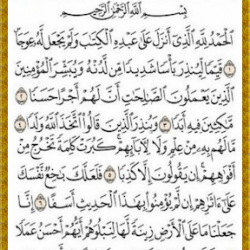 بِسْمِ اللَّهِ الرَّحْمَٰنِ الرَّحِيمِ
الْحَمْدُ لِلَّهِ الَّذِي أَنزَلَ عَلَىٰ عَبْدِهِ الْكِتَابَ وَلَمْ يَجْعَل لَّهُ عِوَجًا
١ قَيِّمًا لِّيُنذِرَ بَأْسًا شَدِيدًا مِّن لَّدُنْهُ وَيُبَشِّرَ الْمُؤْمِنِينَ
الَّذِينَ يَعْمَلُونَ الصَّالِحَاتِ أَنَّ لَهُمْ أَجْرًا حَسَنًا ٢
مَّاكِثِينَ فِيهِ أَبَدًا ٣ وَيُنذِرَ الَّذِينَ قَالُوا اتَّخَذَ اللَّهُ وَلَدًا ٤
مَّا لَهُم بِهِ مِنْ عِلْمٍ وَلَا لِآبَائِهِمْ كَبُرَتْ كَلِمَةً تَخْرُجُ مِنْ
أَفْوَاهِهِمْ إِن يَقُولُونَ إِلَّا كَذِبًا ٥ فَلَعَلَّكَ بَاخِعٌ نَّفْسَكَ
عَلَىٰ آثَارِهِمْ إِن لَّمْ يُؤْمِنُوا بِهَٰذَا الْحَدِيثِ أَسَفًا ٦ إِنَّا
جَعَلْنَا مَا عَلَى الْأَرْضِ زِينَةً لَّهَا لِنَبْلُوَهُمْ أَيُّهُمْ أَحْسَنُ عَمَلًا